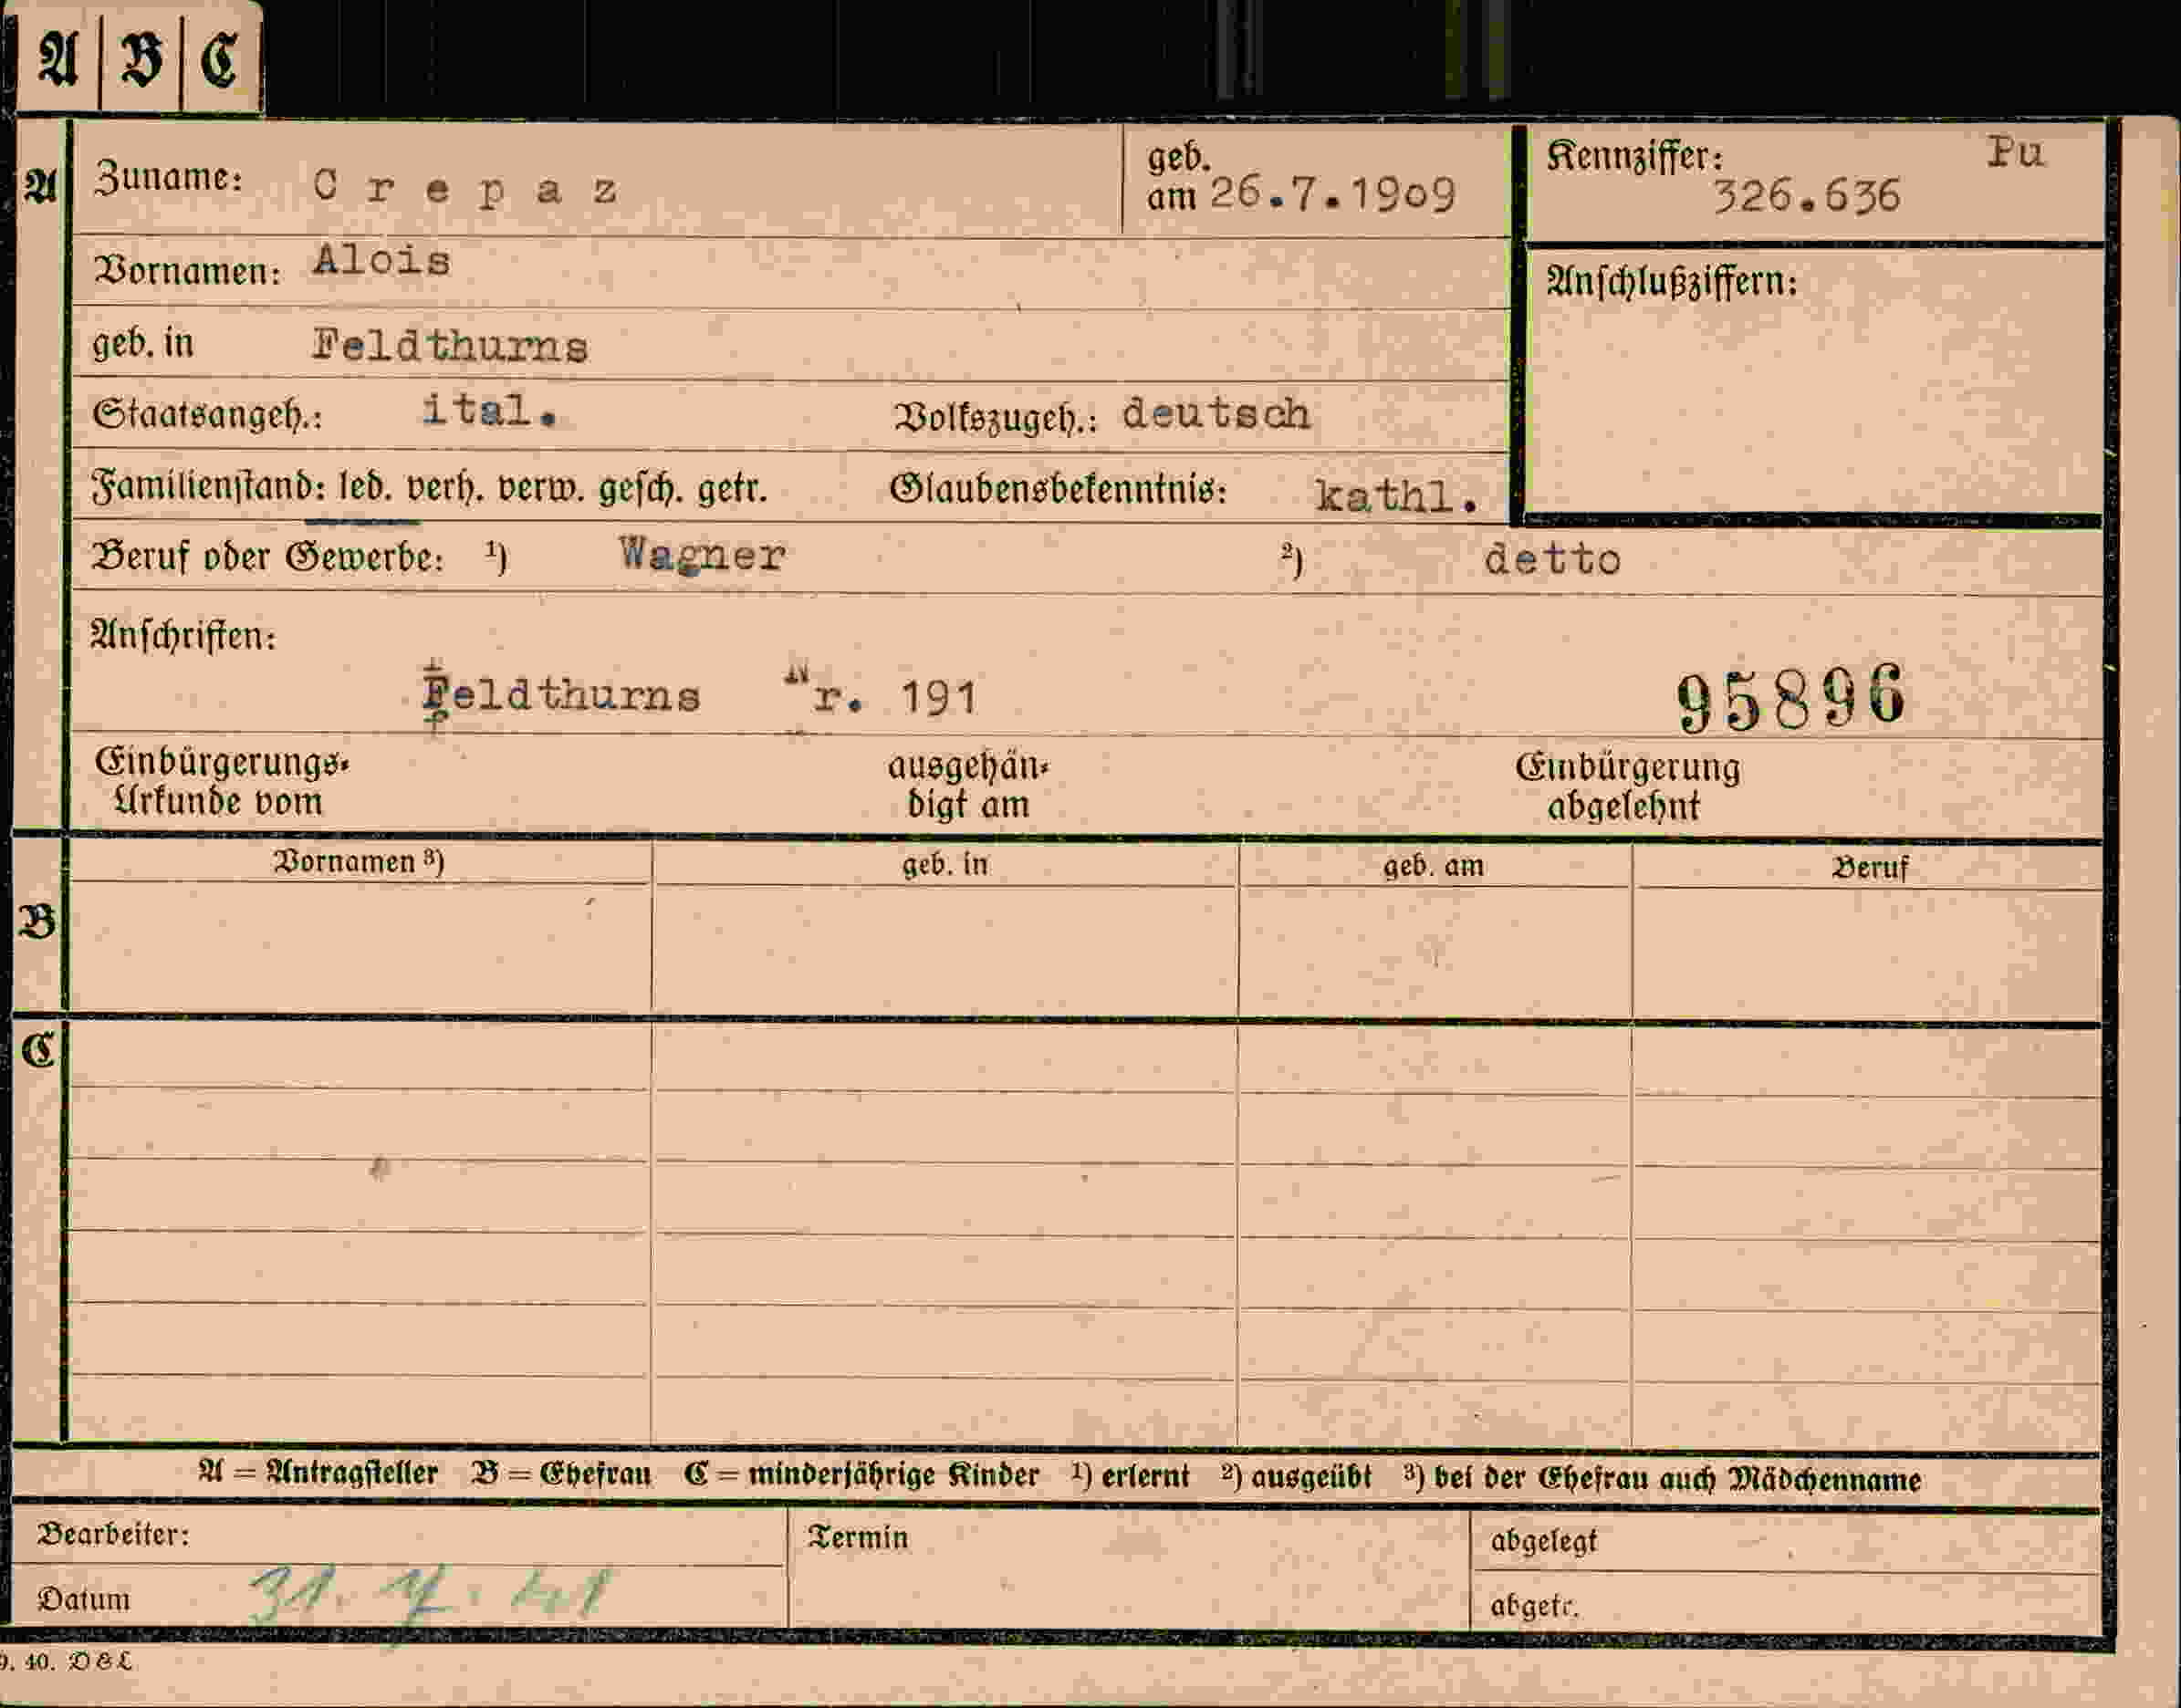 A B C
A Zuname: Crepaz geb. am 26.7.1909 Kennziffer: 326.636 Pu
Vornamen: Alois Anschlußziffern:
geb. in Feldthurns
Staatsangeh.: ital. Volkszugeh.: deutsch
Familienstand: led. verh. verw. gesch. getr. Glaubensbekenntnis: kathl.
Beruf oder Gewerbe: ¹) Wagner ²) detto
Anschriften:
Feldthurns Nr. 191 95896
Einbürgerungs- ausgehän- Einbürgerung
Urkunde vom digt am abgelehnt
Vornamen ³) geb. in geb. am Beruf
B
C
A = Antragsteller B = Ehefrau C = minderjährige Kinder ¹) erlernt ²) ausgeübt ³) bei der Ehefrau auch Mädchenname
Bearbeiter: Termin abgelegt
Datum 31. 7. 41 abgetr.
9. 40. D & L